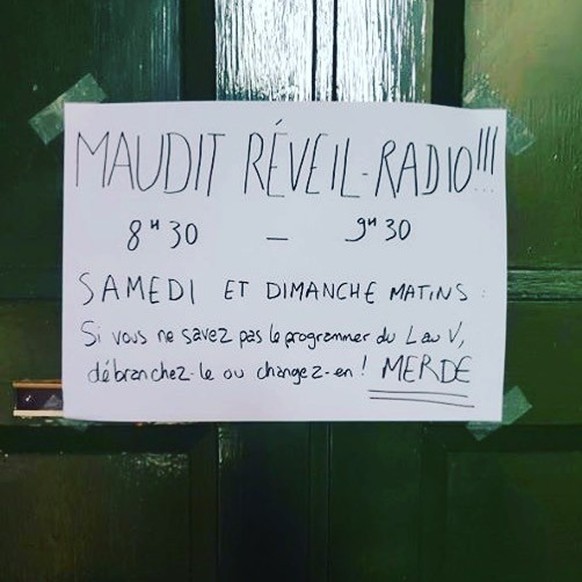 MAUDIT RÉVEIL-RADIO!!!
8H30 – 9H30
SAMEDI ET DIMANCHE MATINS :
Si vous ne savez pas le programmer du L au V,
débranchez-le ou changez-en ! MERDE